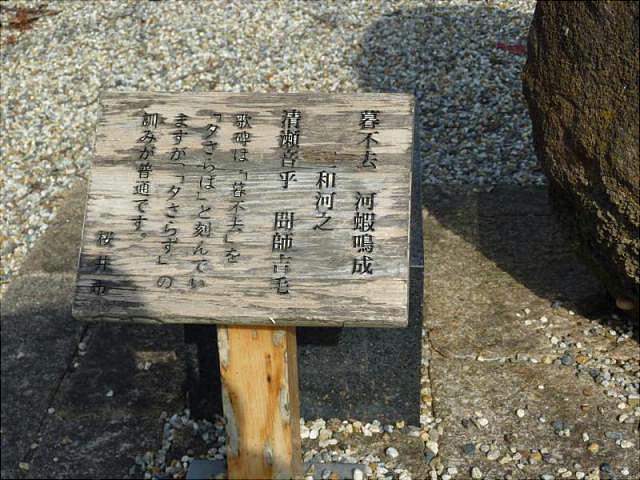 暮不去 河蝦鳴成
和河之
清瀬音乎 聞師吉毛
歌碑は、「暮不去」を
「夕さらば」と刻んでい
ますが、「夕さらず」の
訓みが普通です。
桜井市